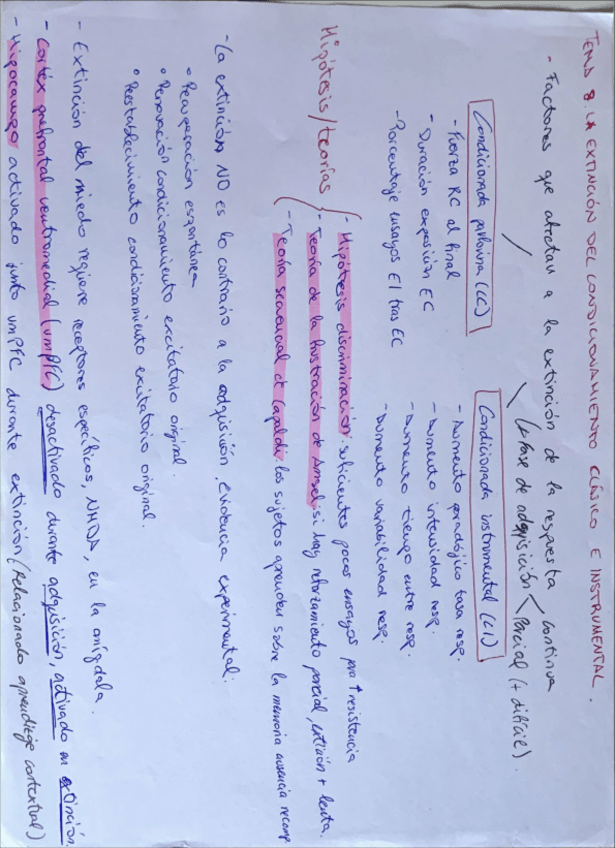 TEMA 8 LA EXTINCIÓN DEL CONDICIONAMIENTO CLÁSICO E INSTRUMENTAL.
- Factores que afectan a la extinción de la respuesta
(+ fase de adquisición < continua
parcial (+ difícil).
Condicionada pavloviana (CC)
- Fuerza RC al final
- Duración exposición EC
- Porcentaje ensayos EI tras EC
Condicionada instrumental (CI)
- Aumento paradójico tasa resp.
- Aumento intensidad resp.
- Aumento tiempo entre resp.
- Aumento variabilidad resp.
Hipótesis/teorías
- Hipótesis discriminación: suficientes pocos ensayos para ↑ resistencia
- Teoría de la frustración de Amsel: si hay reforzamiento parcial, extinción + lenta.
- Teoría secuencial de Capaldi: los sujetos aprenden sobre la memoria ausencia recomp
- La extinción NO es lo contrario a la adquisición. Evidencia experimental:
• Recuperación espontánea
• Renovación condicionamiento excitatorio original.
• Restablecimiento condicionamiento excitatorio original.
- Extinción del miedo requiere receptores específicos, NMDA, en la amígdala.
- Cortéx prefrontal ventromedial (vmPFC) desactivado durante adquisición, activado en extinción.
- Hipocampo activado junto vmPFC durante extinción (Relacionado aprendizaje contextual)